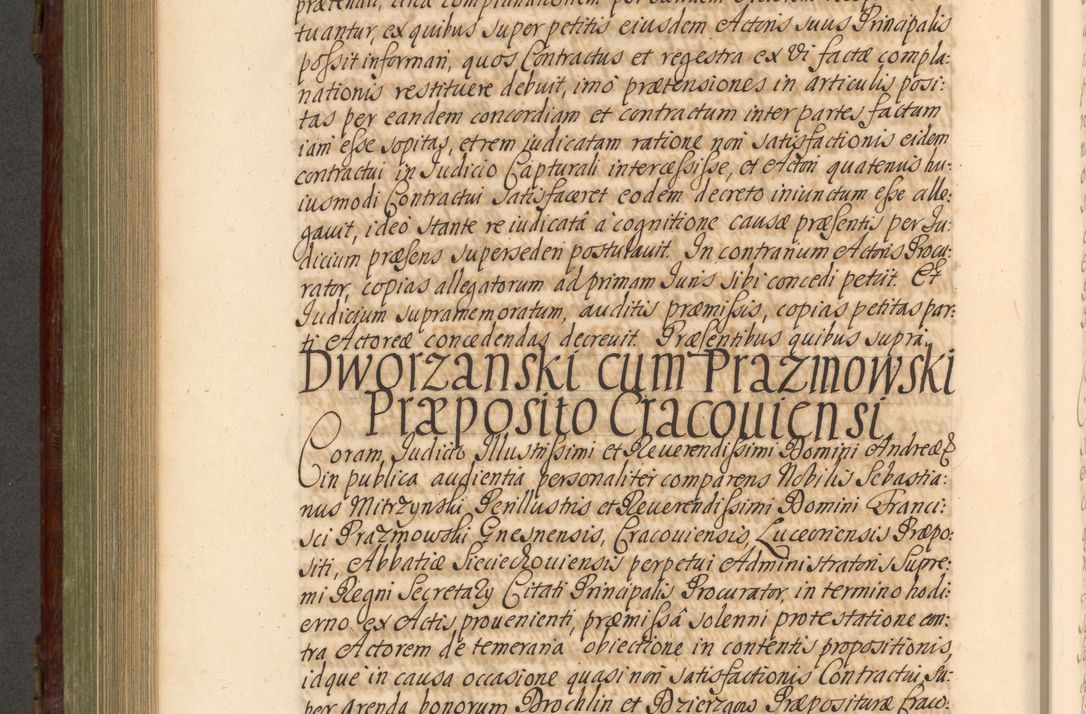 prætendit, circa complanationem per eandem
tuantur, ex quibus super petitis eiusdem Actoris suus Principalis
possit informari, quos Contractus et regestra ex vi factæ compla:
nationis restituere debuit, imo prætensiones in articulis posi:
tas per eandem concordiam et contractum inter partes factum
iam esse sopitas, et rem iudicatam ratione non satisfactionis eidem
contractui in Judicio Capturali intercessisse, et Actori quatenus hu:
iusmodi Contractui satisfaceret eodem decreto iniunctum esse alle:
gavit, ideo stante re iudicatâ a cognitione causæ præsentis per Ju:
dicium præsens supersederi postulavit. In contrarium Actoris Procu:
rator, copias allegatorum ad primam Juris sibi concedi petiit. Et
Judicium supramemoratum, auditis præmissis, copias petitas par:
ti Actoreæ concedendas decrevit. Præsentibus quibus supra.
Dworzanski cum Prazmowski
Præposito Cracouiensi
Coram Judicio Illustrissimi et Reverendissimi Domini Andreæ &
in publica audientia personaliter comparens Nobilis Sebastia:
nus Mitrzynski Perillustris et Reverendissimi Domini Franci:
sci Prazmowski Gnesnensis, Cracoviensis Luceoriensis Præpo:
siti, Abbatiæ Sieciechoviensis perpetui Administratoris Supre:
mi Regni Secretarÿ Citati Principalis Procurator, in termino hodi:
erno ex Actis provenienti, præmissâ solenni protestatione con:
tra Actorem de temeraria obiectione in contentis propositionis,
idque in causa occasione quasi non satisfactionis Contractui su:
per arenda bonorum Drochlin et Dzierzgow Præposituræ Craco: